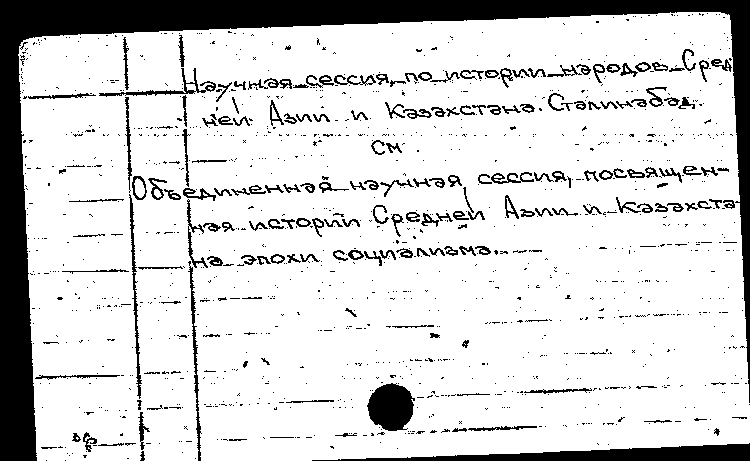 Научная сессия, по истории народов Сред
ней Азии и Казахстана. Сталинабад.
См
Объединенная научная сессия, посвящен-
ная истории Средней Азии и Казахста-
на эпохи социализма.